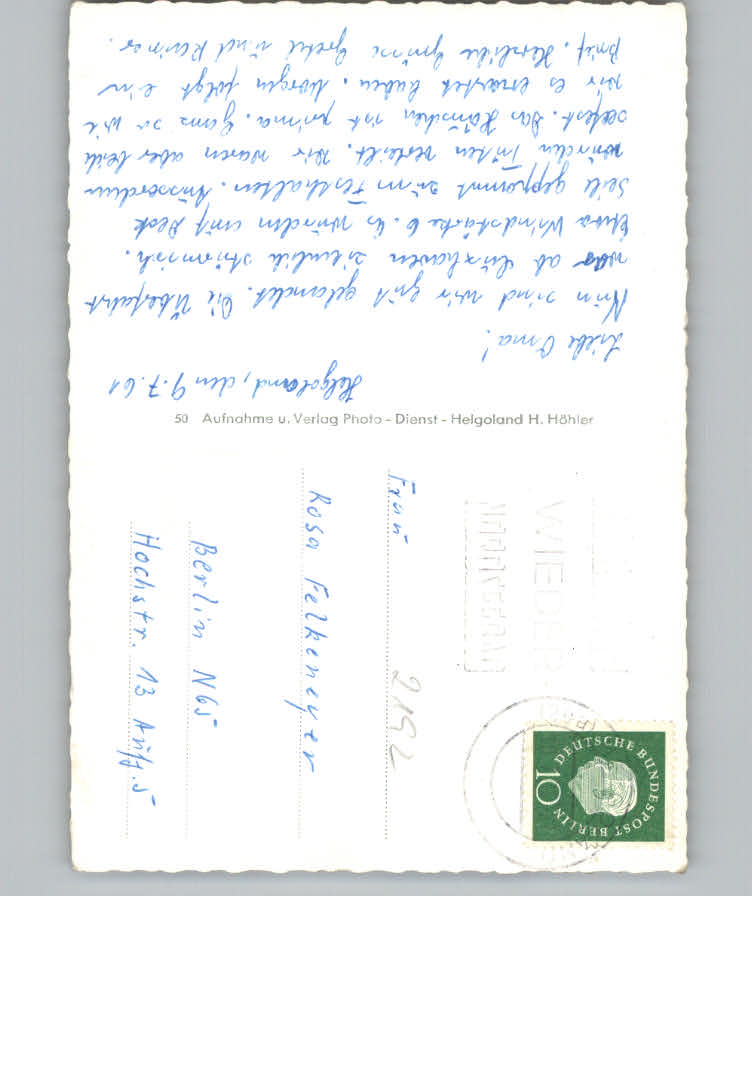 Helgoland, den 9.7.61
Liebe Oma!
Nun sind wir gut gelandet. Die Überfahrt
war ab Cuxhaven ziemlich stürmisch.
Etwa Windstärke 6. Es wurden auf Deck
Seile gespannt zum Festhalten. Ausserdem
wurden Tüten verteilt. Wir waren aber beide
seefest. Das Häuschen ist prima. Ganz so wie
wir es erwartet haben. Morgen folgt ein
Brief. Herzliche Grüsse Gretel und Rainer.
50 Aufnahme u. Verlag Photo - Dienst - Helgoland H. Höhler
Frau
Rosa Felkeneyer
Berlin N65
Hochstr. 13 Aufg. 5
2192
WIEDER
DEUTSCHE BUNDESPOST BERLIN
10